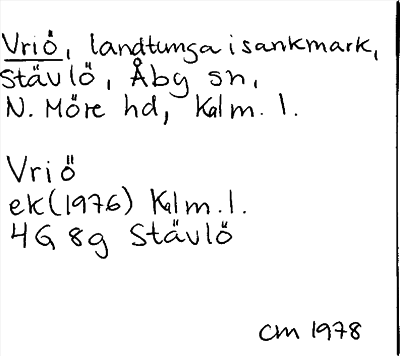 Vriö, landtunga i sankmark,
Stävlö, Åby sn,
N. Möre hd, Kalm. l.
Vriö
ek (1976) Kalm. l.
4G 8g Stävlö
CM 1978